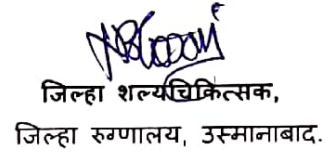 जिल्हा शल्यचिकित्सक,
जिल्हा रुग्णालय, उस्मानाबाद.